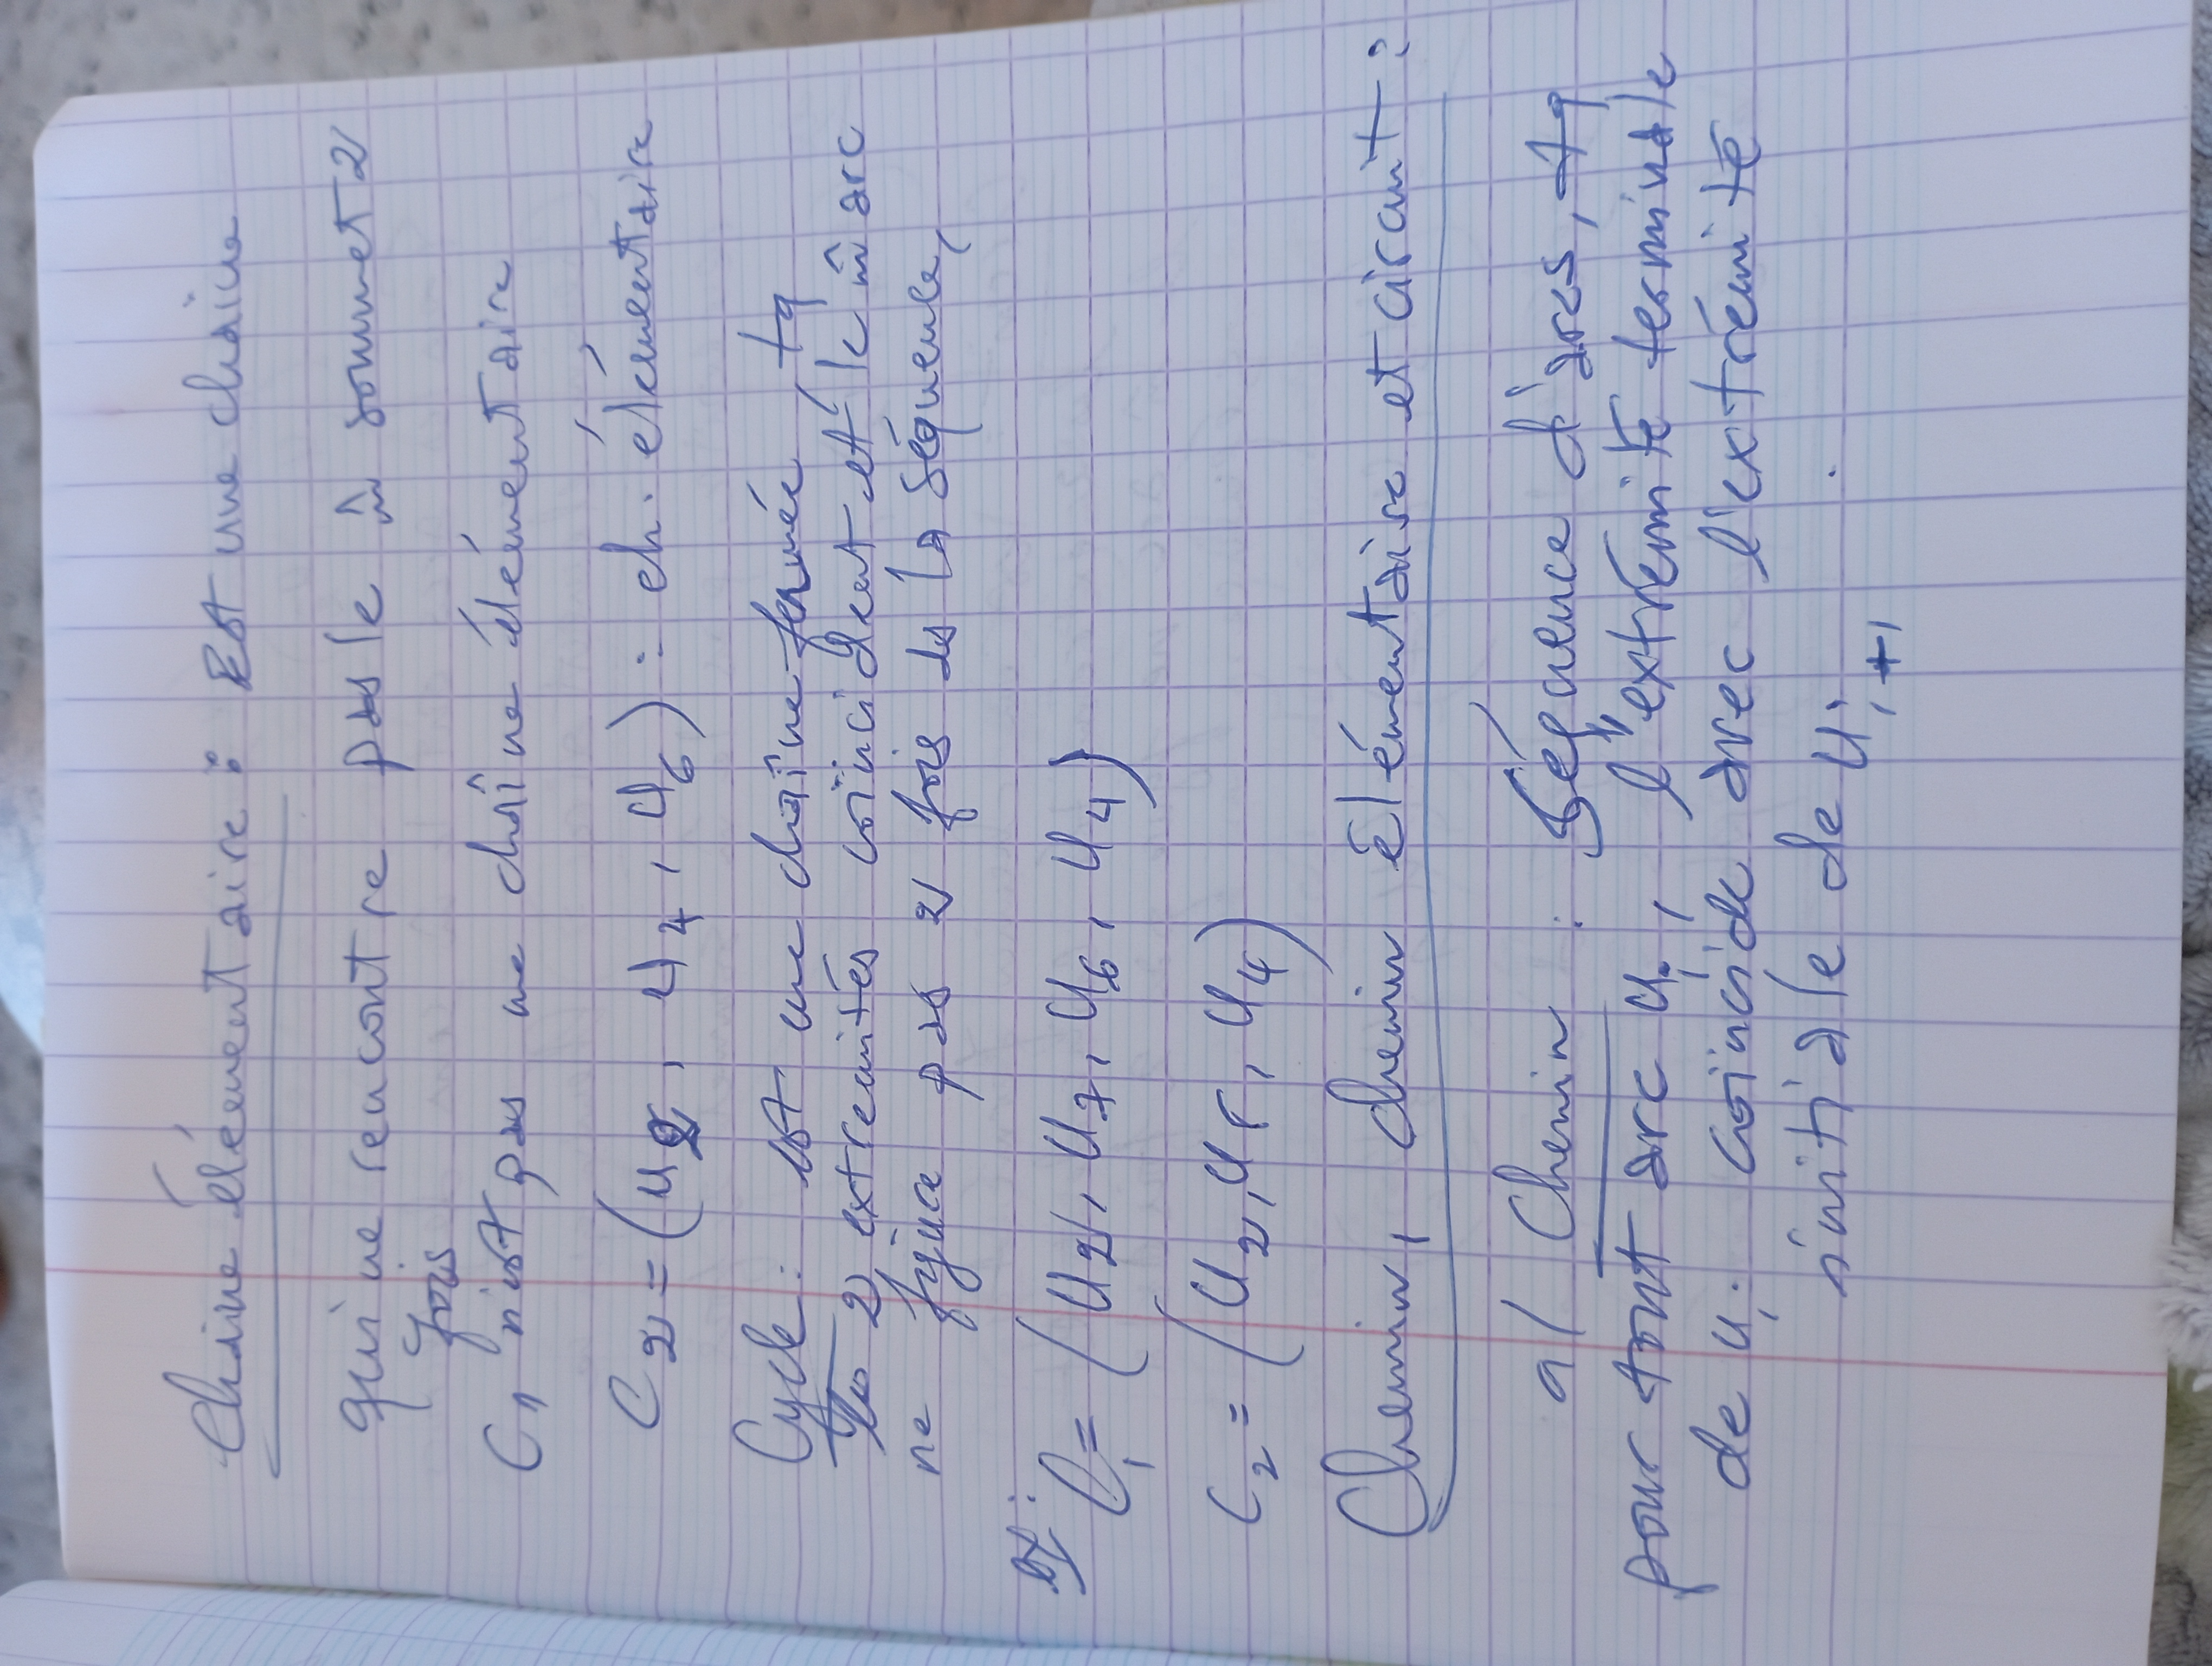 Chaine élémentaire : Est une chaine
qui ne rencontre pas le m̂ sommet 2
fois
C₁ n'est pas une chaîne élémentaire
C₂ = (u₂, u₄, u₆) : ch. élémentaire
Cycle : est une chaîne fermée, tq
les 2 extremités coïncident et le m̂ arc
ne figure pas 2 fois ds la séquence,
ex :
C₁ = (u₂, u₇, u₆, u₄)
C₂ = (u₂, u₅, u₄)
Chemin, chemin élémentaire et circuit :
a/ Chemin : Séquence d'arcs, tq
pour tout arc uᵢ, l'extrémité terminale
de uᵢ coïncide avec l'extrémité
initiale de uᵢ₊₁ .